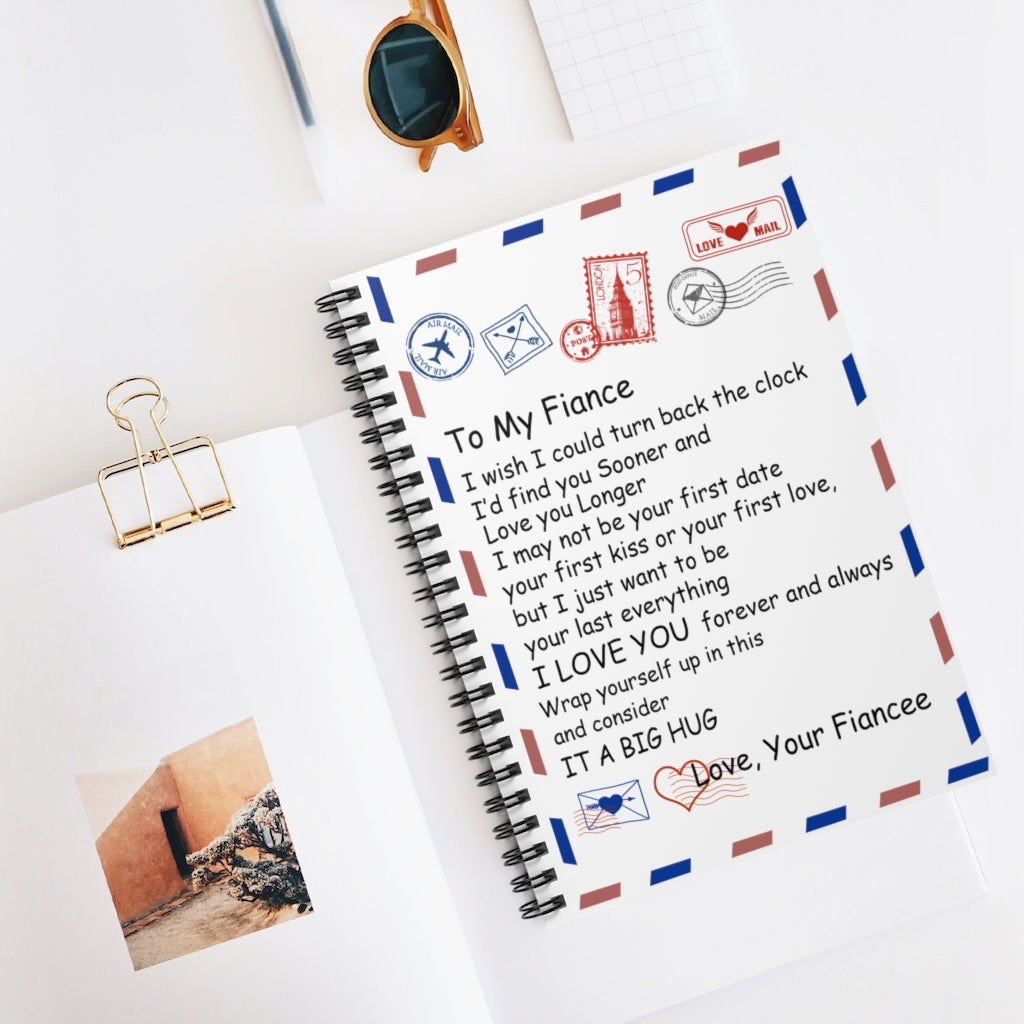 LOVE MAIL
LONDON
5
POST OFFICE
MAIL
AIR MAIL
AIR MAIL
POST
To My Fiance
I wish I could turn back the clock
I'd find you Sooner and
Love you Longer
I may not be your first date
your first kiss or your first love,
but I just want to be
your last everything
I LOVE YOU forever and always
Wrap yourself up in this
and consider
IT A BIG HUG
Love, Your Fiancee